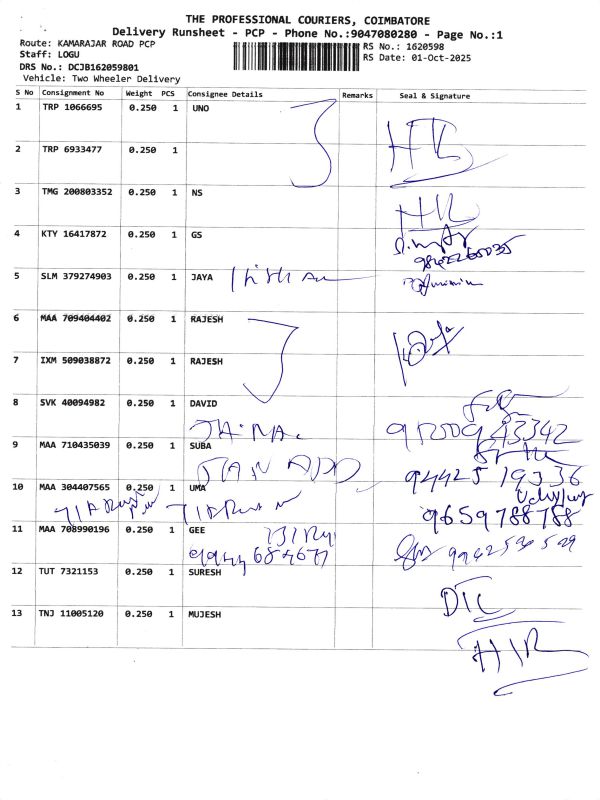 THE PROFESSIONAL COURIERS, COIMBATORE
Delivery Runsheet - PCP - Phone No.:9047080280 - Page No.:1
Route: KAMARAJAR ROAD PCP
RS No.: 1620598
Staff: LOGU
RS Date: 01-Oct-2025
DRS No.: DCJB162059801
Vehicle: Two Wheeler Delivery
S No Consignment No Weight PCS Consignee Details Remarks Seal & Signature
1 TRP 1066695 0.250 1 UNO
2 TRP 6933477 0.250 1
3 TMG 200803352 0.250 1 NS
4 KTY 16417872 0.250 1 GS
5 SLM 379274903 0.250 1 JAYA
6 MAA 709404402 0.250 1 RAJESH
7 IXM 509038872 0.250 1 RAJESH
8 SVK 40094982 0.250 1 DAVID
9 MAA 710435039 0.250 1 SUBA
94425 19336
10 MAA 304407565 0.250 1 UMA
9659788788
11 MAA 708990196 0.250 1 GEE
12 TUT 7321153 0.250 1 SURESH
13 TNJ 11005120 0.250 1 MUJESH